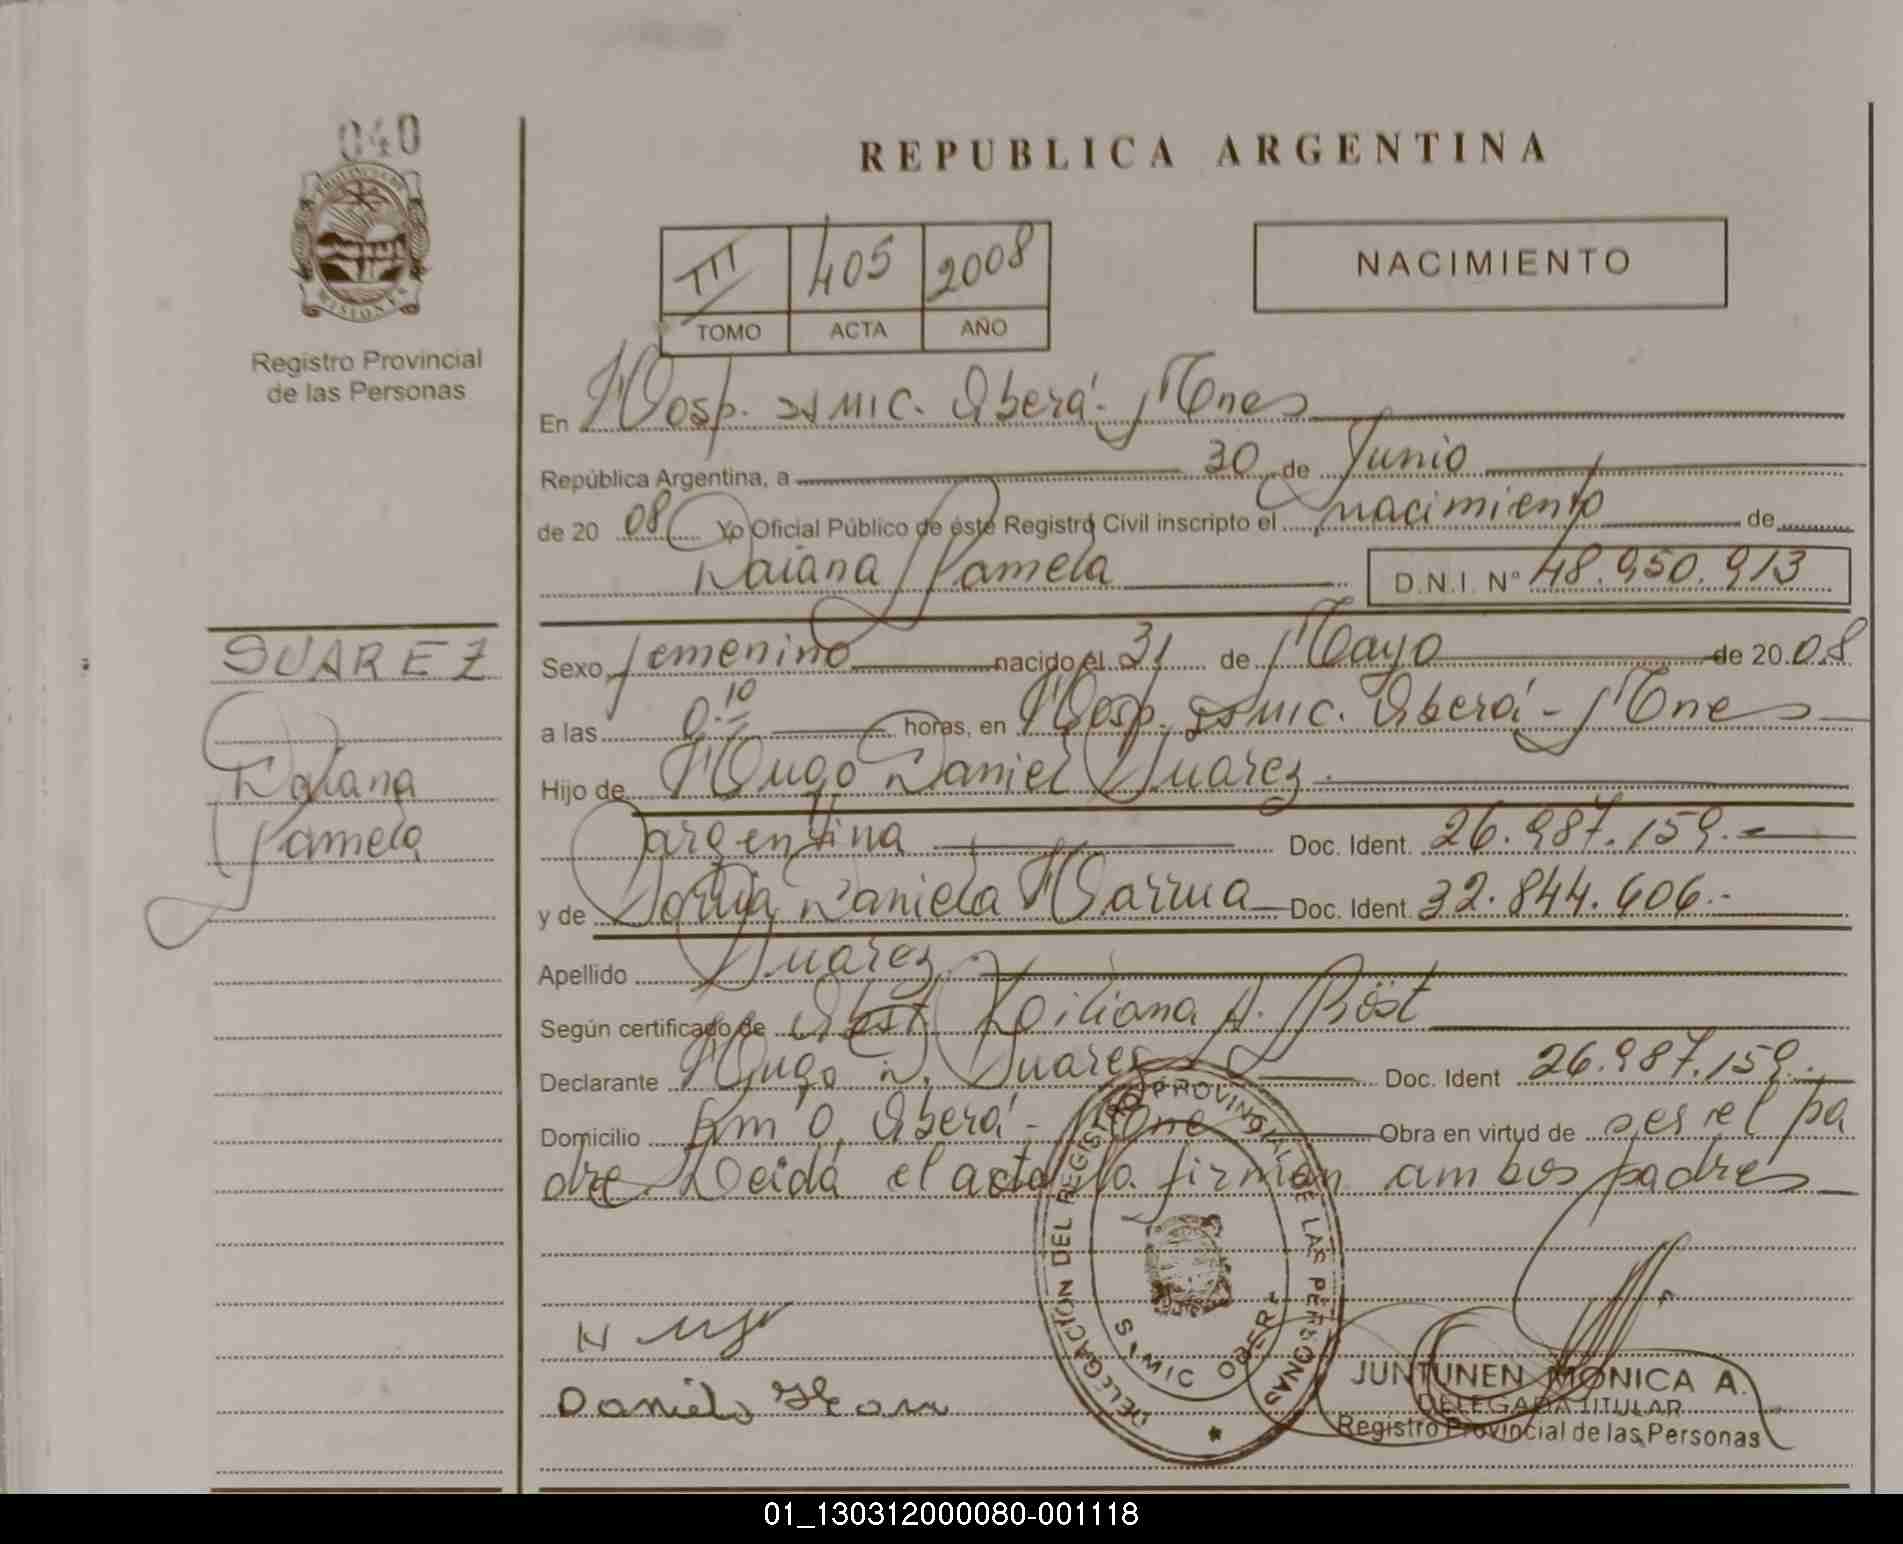 040
REPUBLICA ARGENTINA
III 405 2008
TOMO ACTA AÑO
NACIMIENTO
Registro Provincial
de las Personas
En Hosp. SAMIC. Oberá - Mnes
República Argentina, a 30 de Junio
de 2008 Yo Oficial Público de éste Registro Civil inscripto el nacimiento de
Daiana Pamela D.N.I. N° 48.950.913
SUAREZ
Daiana
Pamela
Sexo femenino nacido el 31 de Mayo de 2008
a las 0.10 horas, en Hosp. SAMIC. Oberá - Mnes
Hijo de Hugo Daniel Suarez
argentina Doc. Ident. 26.987.159.-
y de Daniela Doc. Ident. 32.844.606.-
Apellido Suarez
Según certificado de Obst. A. Böst
Declarante Hugo D. Suarez Doc. Ident 26.987.159.
Domicilio Km 0, Oberá - Mne Obra en virtud de ser el pa
dre. Leida el acta la firman ambos padres
DELEGACIÓN DEL REGISTRO PROVINCIAL DE LAS PERSONAS
SAMIC OBERA
JUNTUNEN MONICA A.
DELEGADA TITULAR
Registro Provincial de las Personas
01_130312000080-001118